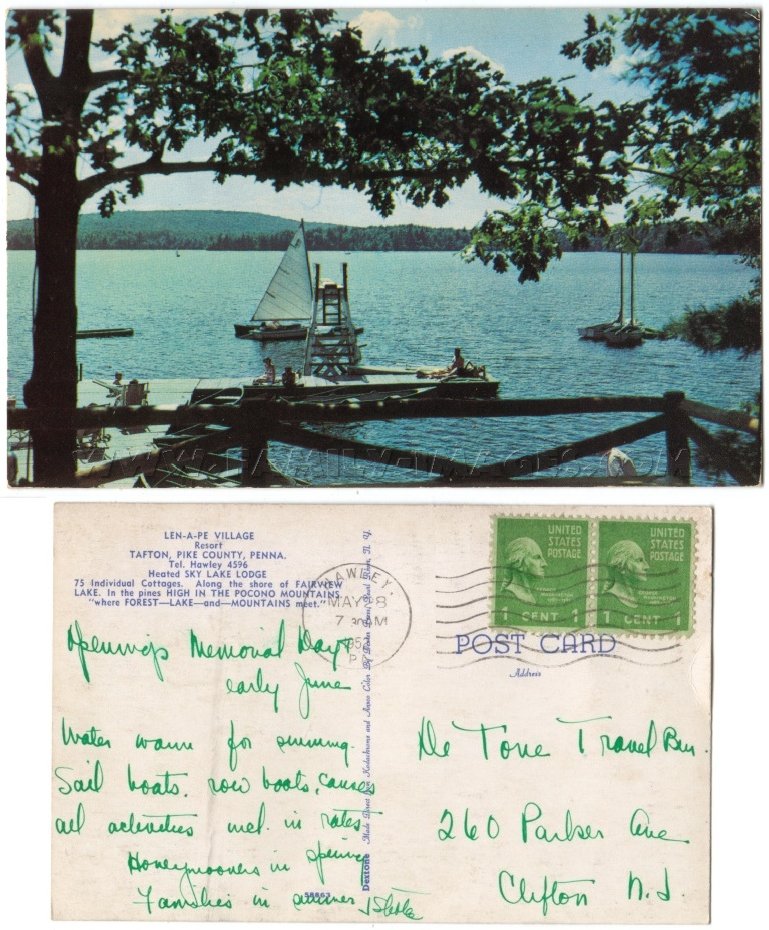 WWW.FAMILY-IMAGES.COM
LEN-A-PE VILLAGE
Resort
TAFTON, PIKE COUNTY, PENNA.
Tel. Hawley 4596
Heated SKY LAKE LODGE
75 Individual Cottages. Along the shore of FAIRVIEW
LAKE. In the pines HIGH IN THE POCONO MOUNTAINS
"where FOREST—LAKE—and—MOUNTAINS meet."
Openings Memorial Day
early June
Water warm for swimming.
Sail boats, row boats, canoes
all activities incl. in rates
Honeymooners in spring
Families in summer
58863
Dextone Made Direct from Kodachrome and Ansco Color By Dexter Press, Pearl River, N. Y.
HAWLEY,
MAY 28
7 AM
195
P
UNITED
STATES
POSTAGE
1 CENT 1
UNITED
STATES
POSTAGE
1 CENT 1
POST CARD
Address
De Tone Travel Bur.
260 Parker Ave
Clifton N.J.